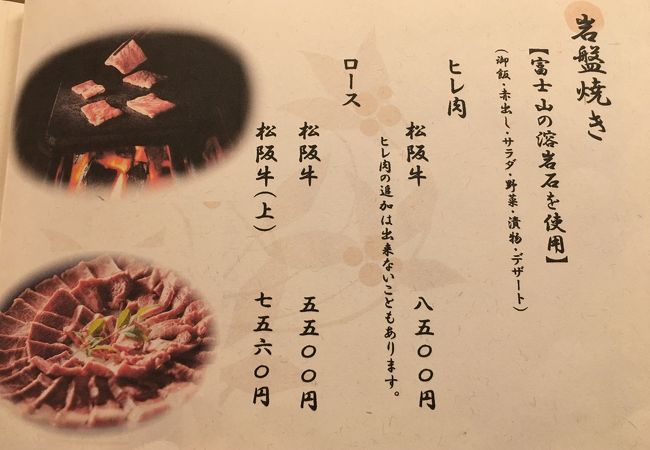 岩盤焼き
【富士山の溶岩石を使用】
(御飯・赤出し・サラダ・野菜・漬物・デザート)
ヒレ肉
松阪牛 八五〇〇円
ヒレ肉の追加は出来ないこともあります。
ロース
松阪牛 五五〇〇円
松阪牛(上) 七五六〇円